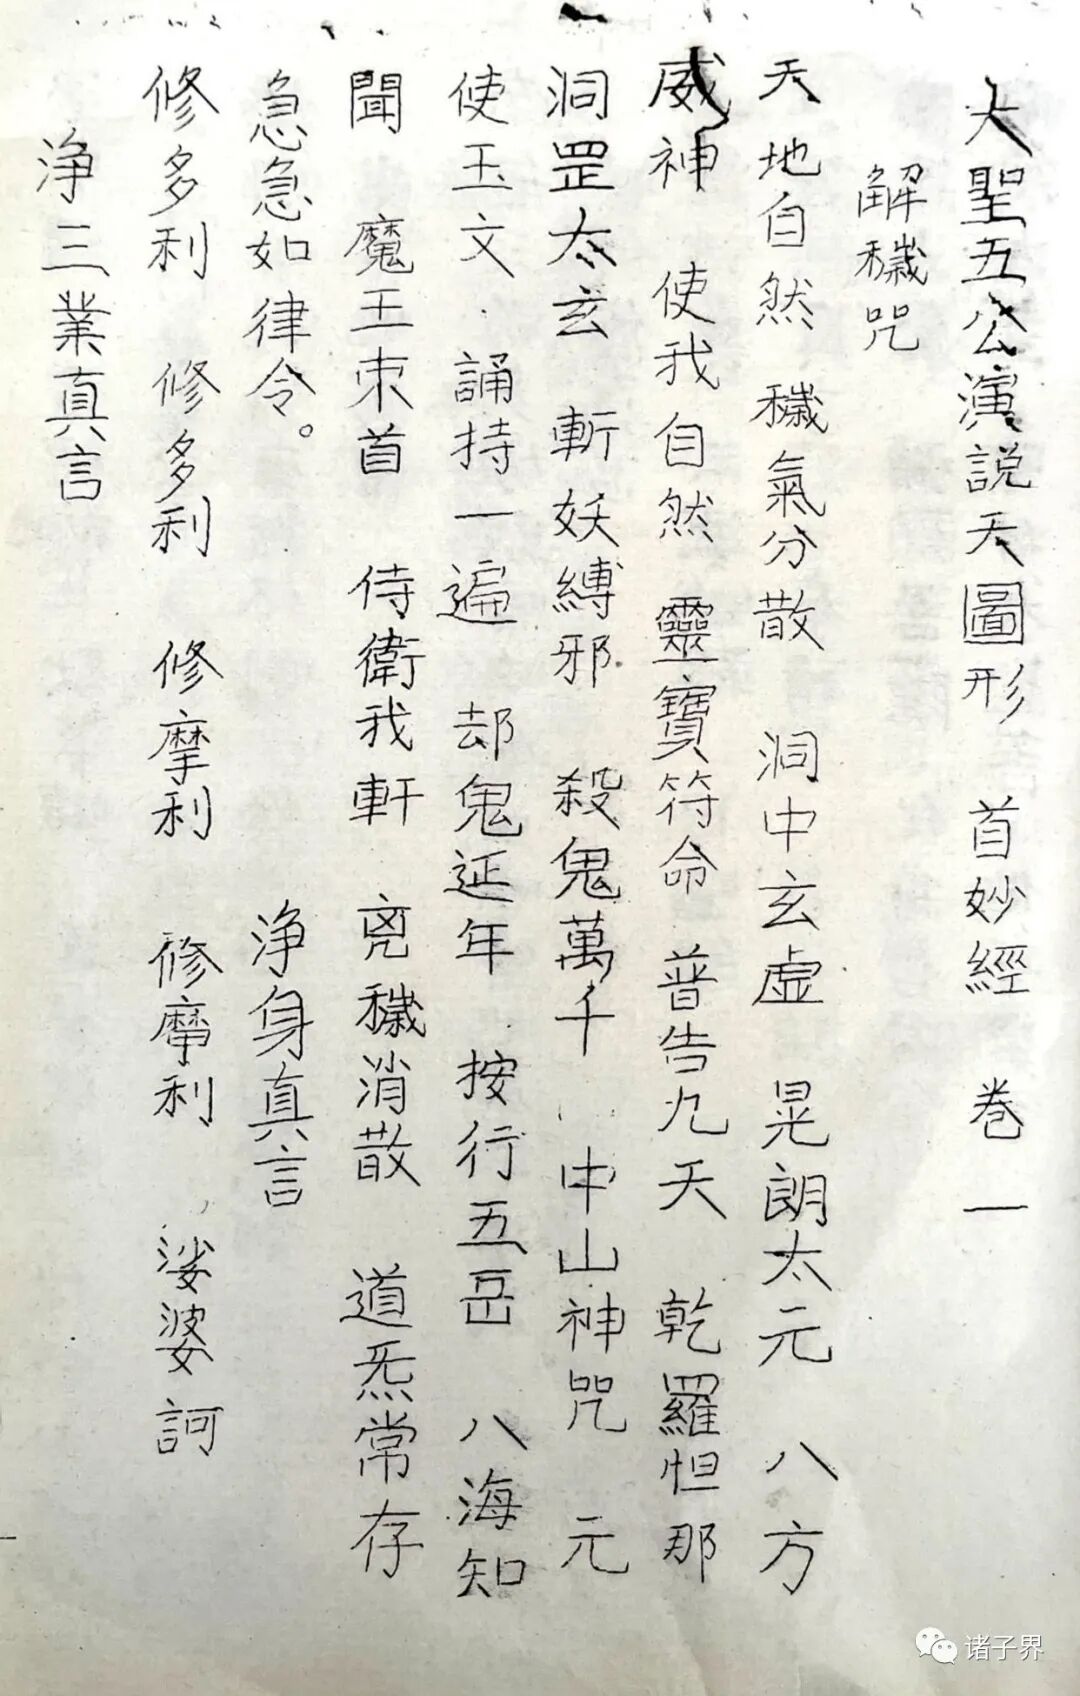 大聖五公演説天圖形 首妙經 巻一
解穢咒
天地自然 穢氣分散 洞中玄虛 晃朗太元 八方
威神 使我自然 靈寶符命 普告九天 乾羅怛那
洞罡太玄 斬妖縛邪 殺鬼萬千 中山神咒 元
使玉文 誦持一遍 却鬼延年 按行五岳 八海知
聞 魔王束首 侍衛我軒 兇穢消散 道炁常存
急急如律令。 浄身真言
修多利 修多利 修摩利 修摩利 娑婆訶
浄三業真言
诸子界